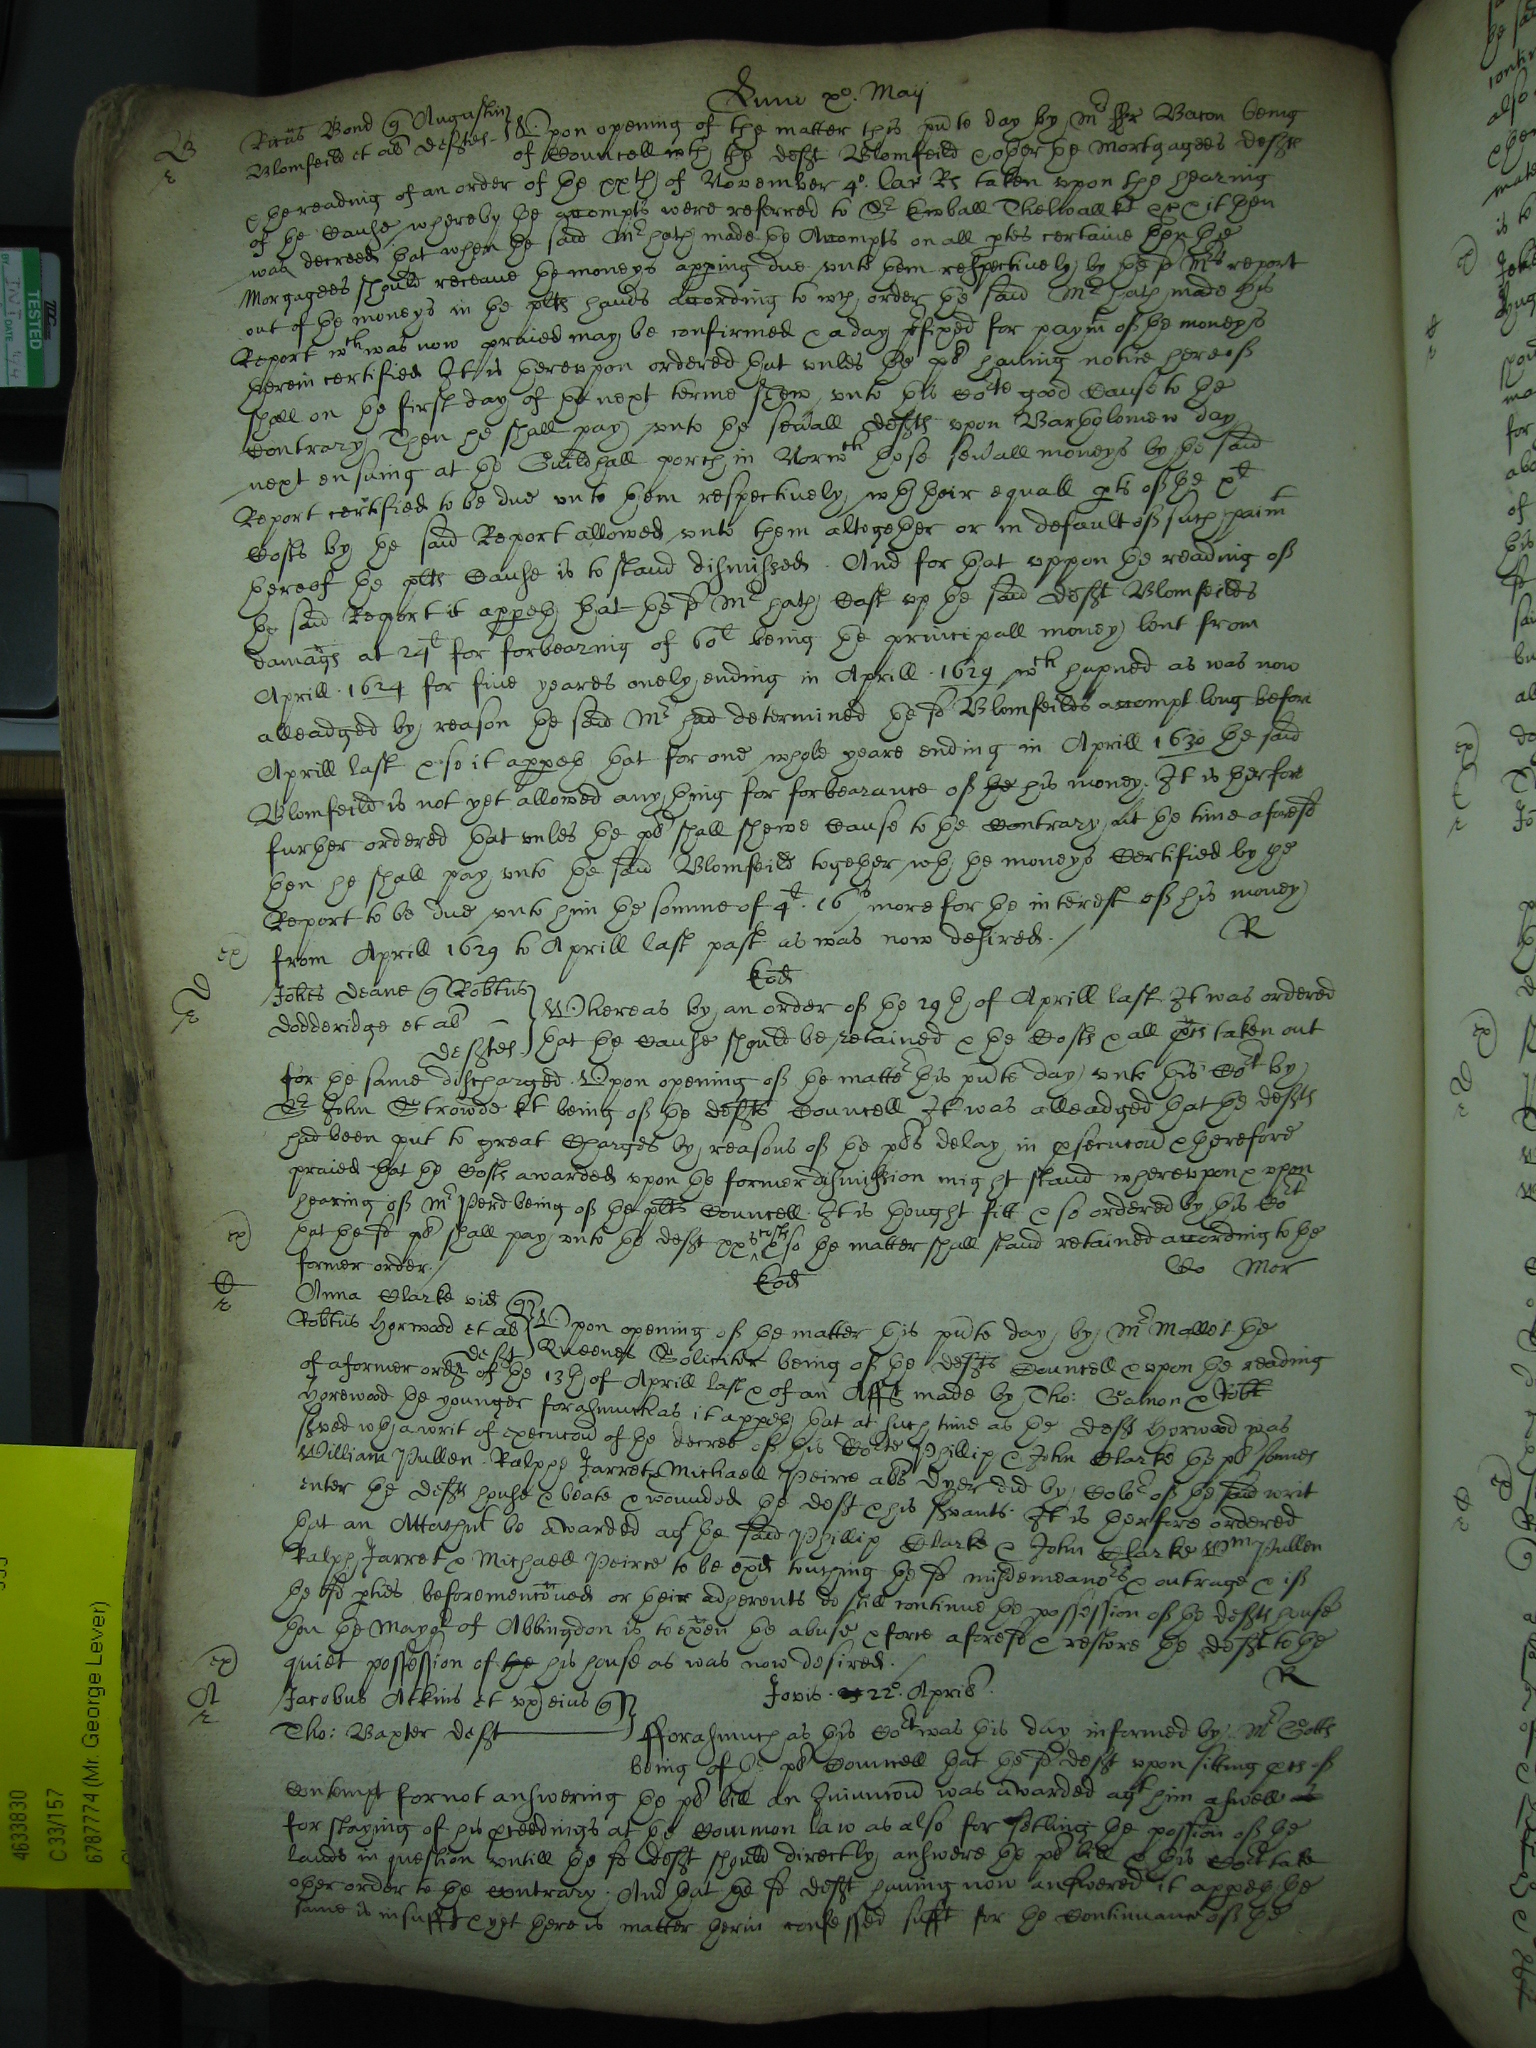 Lune xo. May
Ricūs Bond q Augustin
Blomfeild et ab deftes
Vpon opening of the matter this pnte day by Mr ffr Bacon being
of Councell wth the deft Blomfeild & other the Mortgagees defts
& the reading of an order of the xxth of November 4o. Car Rs taken vpon the hearing
of the Cause whereby the accompts were referred to Sr Kimball Thelwall kt & it then
was decreed that when the said Mr hath made the Accompts on all ptes certaine then the
Morgagees should receaue the moneys apping due vnto them respectiuely by the sd Mrs report
out of the moneys in the plts hands according to wch order the said Mr hath made his
Report wch was now praied may be confirmed & a day pfixed for paymt of the moneys
therein certified It is therevpon ordered that vnles the pl hauing notice hereof
shall on the first day of the next terme shew vnto this Cote good Cause to the
Contrary Then he shall pay vnto the seuall defts vpon Barthholomew day
next ensuing at the Guildhall porch in Norwch those seuall moneys by the said
Report certified to be due vnto them respectiuely wth their equall pts of the xl
Costs by the said Report allowed vnto them altogether or in default of such paimt
thereof the plts Cause is to stand dismissed. And for that vppon the reading of
the said Report it appeth that the sd Mr hath Cast vp the said deft Blomfeilds
damags at 24l for forbearing of 60l being the principall money lent from
Aprill. 1624 for fiue yeares onely ending in Aprill. 1629 wch hapned as was now
alleadged by reason the said Mr had determined the sd Blomfeilds accompt long before
Aprill last & so it appeth that for one whole yeare ending in Aprill 1630 the said
Blomfeild is not yet allowed any thing for forbearance of the his money. It is therfore
further ordered that vnles the pl shall shewe Cause to the Contrary at the time aforesd
then he shall pay vnto the said Blomfeild together wth the moneys Certified by the
Report to be due vnto him the somme of 4l. 16s more for the interest of his money
from Aprill 1629 to Aprill last past as was now desired.
R
Eod
Johes Deane q Robtus
Dodderidge et ab
deftes
Whereas by an order of the 29th of Aprill last It was ordered
that the Cause should be retained & the Costs & all pces taken out
for the same discharged. Vpon opening of the matter this pnte day vnto this Cot by
Sr John Strowde kt being of the defts Councell It was alleadged that the defts
had been put to great Charges by reasons of the pls delay in psecucon & therefore
praied that the Costs awarded vpon the former dismission might stand wherevpon & vpon
hearing of Mr Perd being of the plts Councell. It is thought fitt & so ordered by this Cot
that the sd pl shall pay vnto the deft xxs costs & so the matter shall stand retained according to the
former order.
Co Mor
Eod
Anna Clarke vid q
Robtus Horwood et ab
deft
Vpon opening of the matter this pnte day by Mr Mallet the
Queenes Soliciter being of the defts Councell & vpon the reading
of a former order of the 13th of Aprill last & of an Afft made by Tho: Samon & Robt
Horewood the younger forasmuch as it appeth that at such time as the deft Horwood was
served wth a writ of execucon of the decree of this Corte Phillip & John Clarke the pls sonnes
William Pullen. Ralph Jarret & Michaell Peirce als Dyer did by Color of the said writ
enter the defts house & beate & wounded the deft & his srvants. It is therfore ordered
that an Attachmt be awarded agt the said Phillip Clarke & John Clarke Wm Pullen
Ralph Jarret & Michaell Peirce to be exd touching the sd misdemeanors & outrage & if
the sd pties beforemenconed or their adherents do still continue the possession of the defts house
then the Mayor of Abbingdon is to exen the abuse & force aforesd & restore the deft to the
quiet possession of the his house as was now desired.
R
Jovis 22o. Aprlis
Jacobus Atkins et vx eius q
Tho: Baxter deft
Fforasmuch as this Cot was this day informed by Mr Cotts
being of the pls Councell that the sd deft vpon sitting pces of
Contempt for not answering the pls bill an Iniuncon was awarded agt him aswell
for staying of his pceedings at the Common law as also for setling the possion of the
lands in question vntill the sd deft should directly answere the pls bill & this Cort take
other order to the contrary. And that the sd deft hauing now answered it appeth the
same is insufft & yet there is matter therin confessed sufft for the Continuance of the
TESTED
BY
DATE
4633830
C33/157
6787774 (Mr. George Lever)